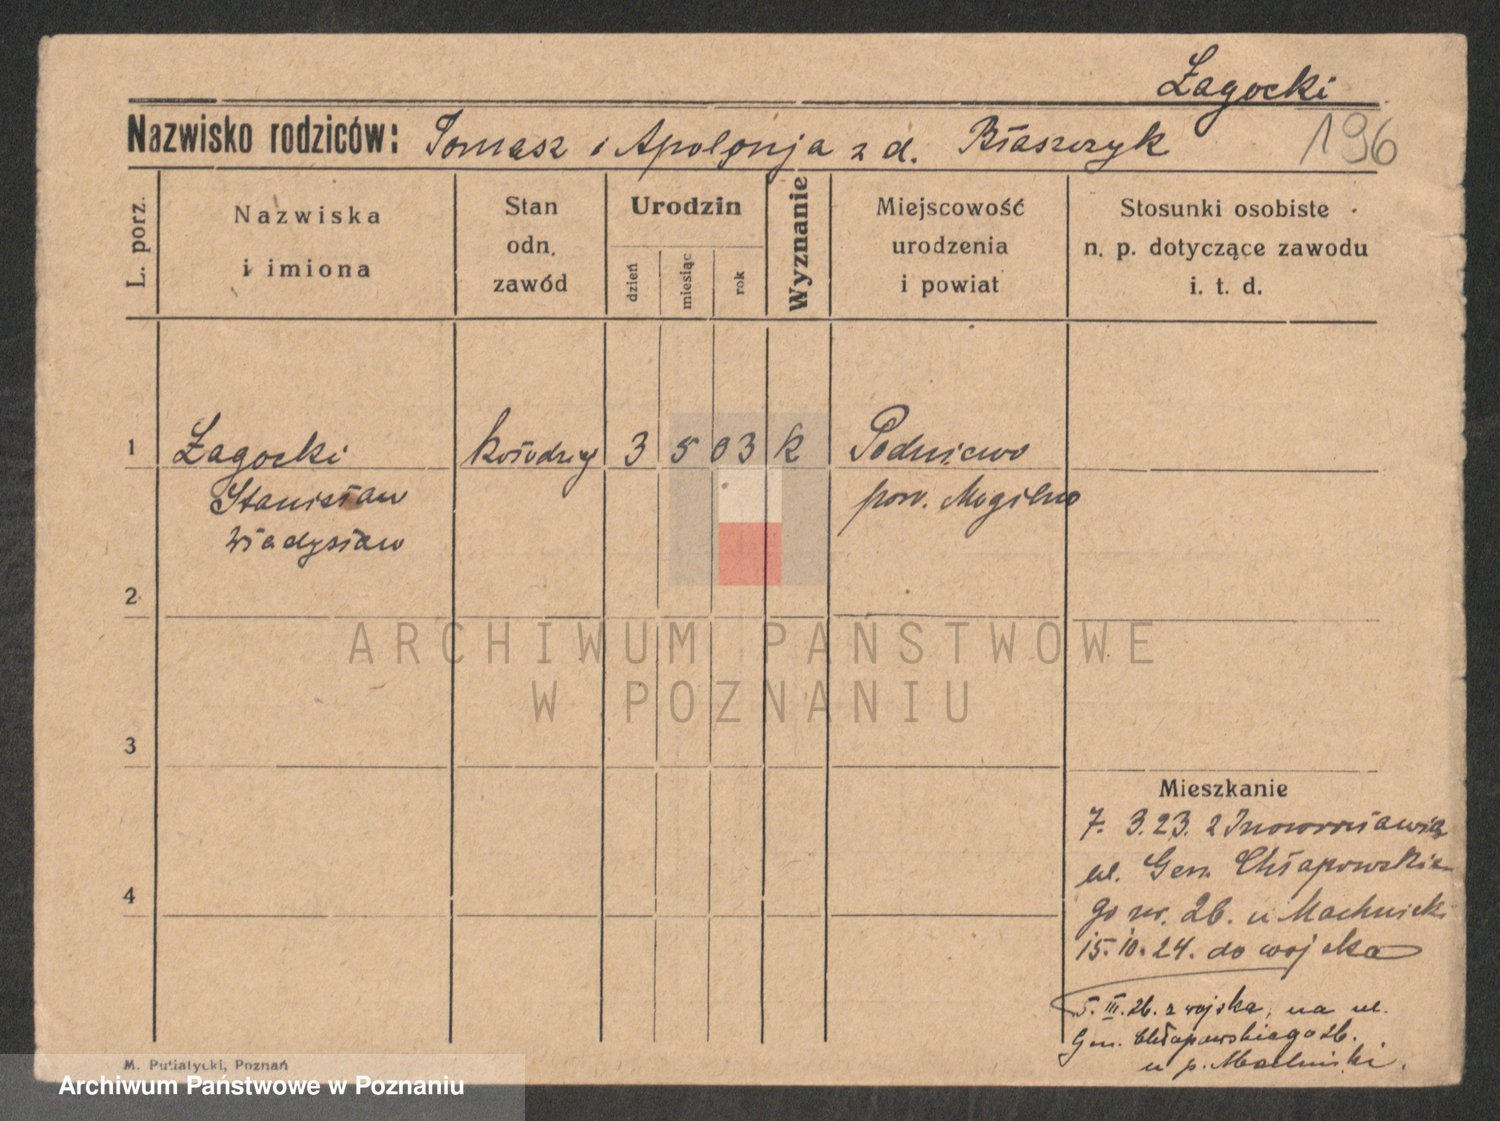 Żagocki
Nazwisko rodziców: Tomasz i Apolonja z d. Błaszczyk
196
L. porz.
Nazwiska
i imiona
Stan
odn.
zawód
Urodzin
dzień
miesiąc
rok
Wyznanie
Miejscowość
urodzenia
i powiat
Stosunki osobiste
n. p. dotyczące zawodu
i. t. d.
1 Żagocki kołodziej 3 5 03 k Padniewo
Stanisław pow. Mogilno
Władysław
2
ARCHIWUM PAŃSTWOWE
W POZNANIU
3
Mieszkanie
7. 3.23. z Inowrocławia
ul. Gen. Chłapowskie-
4
go nr. 26. u Machnicki
15.10.24. do wojska
5.III.26. z wojska, na ul.
Gen. Chłapowskiego 26.
u p.
M. Putiatycki, Poznań
Archiwum Państwowe w Poznaniu